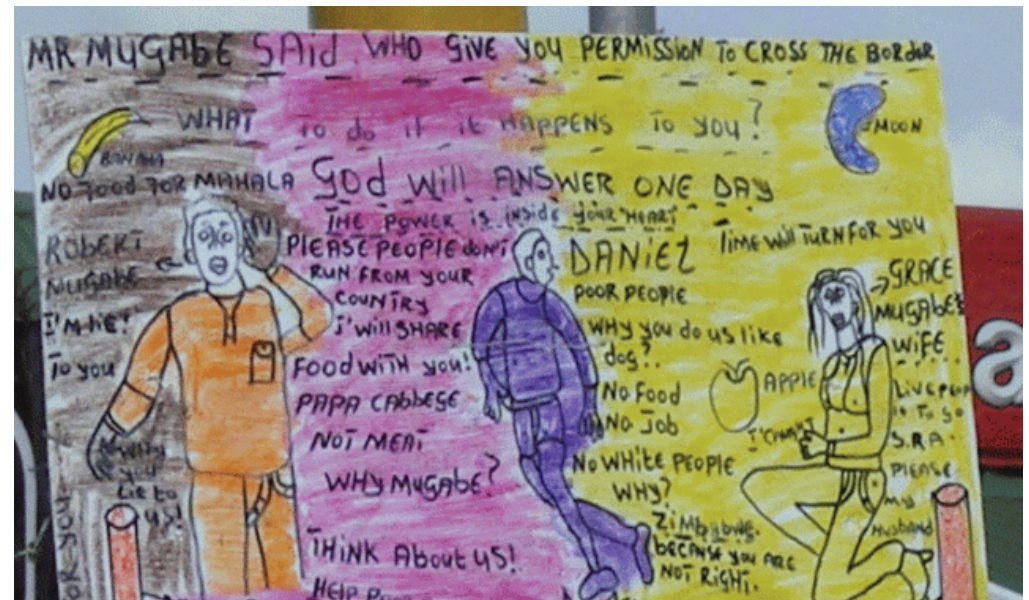 MR MUGABE SAID WHO GIVE YOU PERMISSION TO CROSS THE BORDER
WHAT TO do if it HAPPENS TO YOU?
BANANA
MOON
NO FOOD FOR MAHALA
GOD Will ANSWER ONE DAY
THE POWER is iNSide YOUR HEART
TiMe Will TURN FOR YOU
ROBERT
MUGABE
I'M LIE!
TO YOU
WHY
YOU
Lie to
US!
PLEASE PEOPLE dON'T
RUN FROM YOUR
COUNTRY
i'Will SHARE
FOOD WiTH YOU!
PAPA CABBEGE
NOT MEAT
WHY MUGABE?
THiNK About US!
HELP
DANiEL
POOR PEOPLE
WHY YOU do US liKE
dog?
No Food
No Job
No WHiTE PEOPLE
WHY?
ZiMbybwe.
becAUSE YOU ARE
NOT RigHT.
GRACE
MUGABE'S
WiFE
APPLE
LIVE
iS To go
S.R.A.
PLEASE
MY
HUSBAND